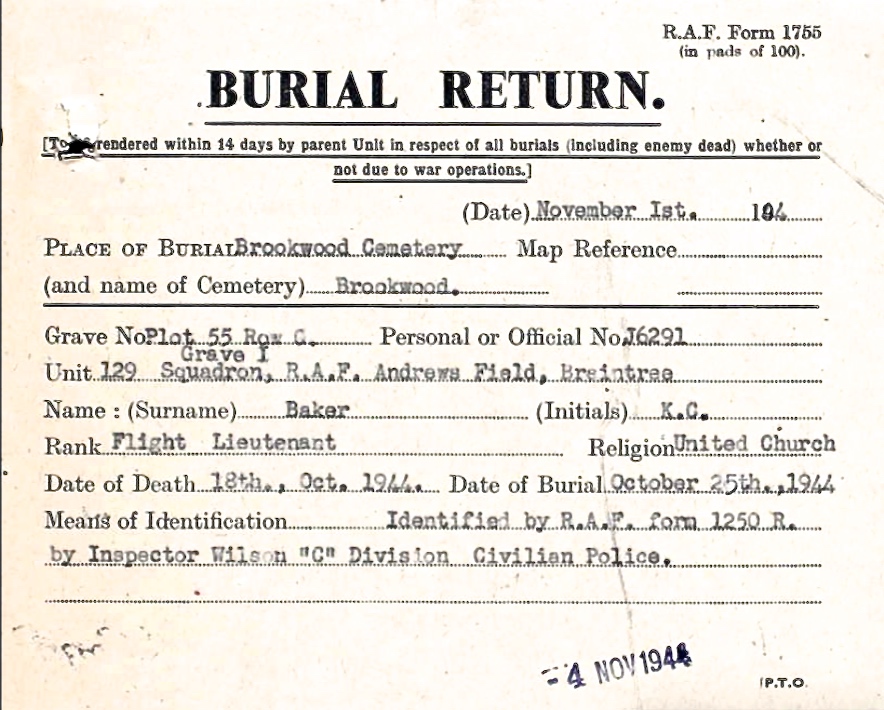 R.A.F. Form 1755
(in pads of 100).
BURIAL RETURN.
[To rendered within 14 days by parent Unit in respect of all burials (including enemy dead) whether or
not due to war operations.]
(Date) November Ist. 194
PLACE OF BURIAL Brookwood Cemetery Map Reference
(and name of Cemetery) Brookwood.
Grave No Plot 55 Row C. Personal or Official No J6291
Grave I
Unit 129 Squadron, R.A.F. Andrews Field, Braintree
Name : (Surname) Baker (Initials) K.C.
Rank Flight Lieutenant Religion United Church
Date of Death 18th., Oct. 1944. Date of Burial October 25th.,1944
Means of Identification Identified by R.A.F. form 1250 R.
by Inspector Wilson "C" Division Civilian Police.
- 4 NOV 1944
P.T.O.